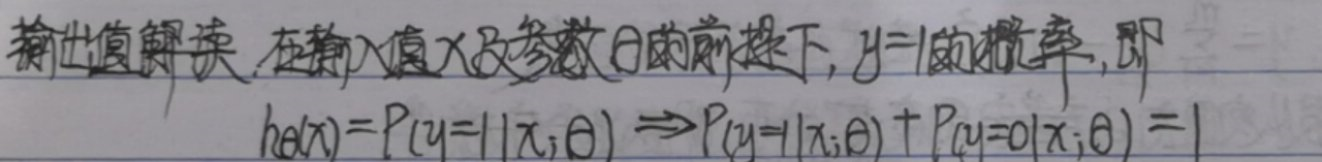 输出值解读.在输入值x及参数θ的前提下,y=1的概率,即
hθ(x)=P(y=1|x;θ)⇒P(y=1|x;θ)+P(y=0|x;θ)=1